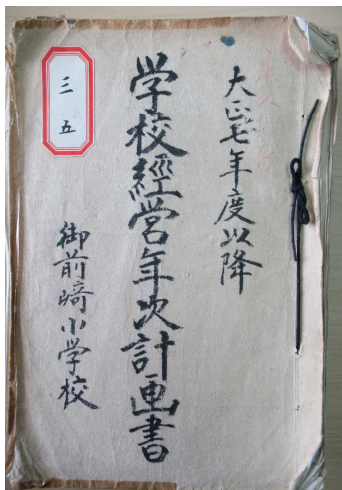 大正七年度以降
学校經営年次計画書
御前崎小学校
三五